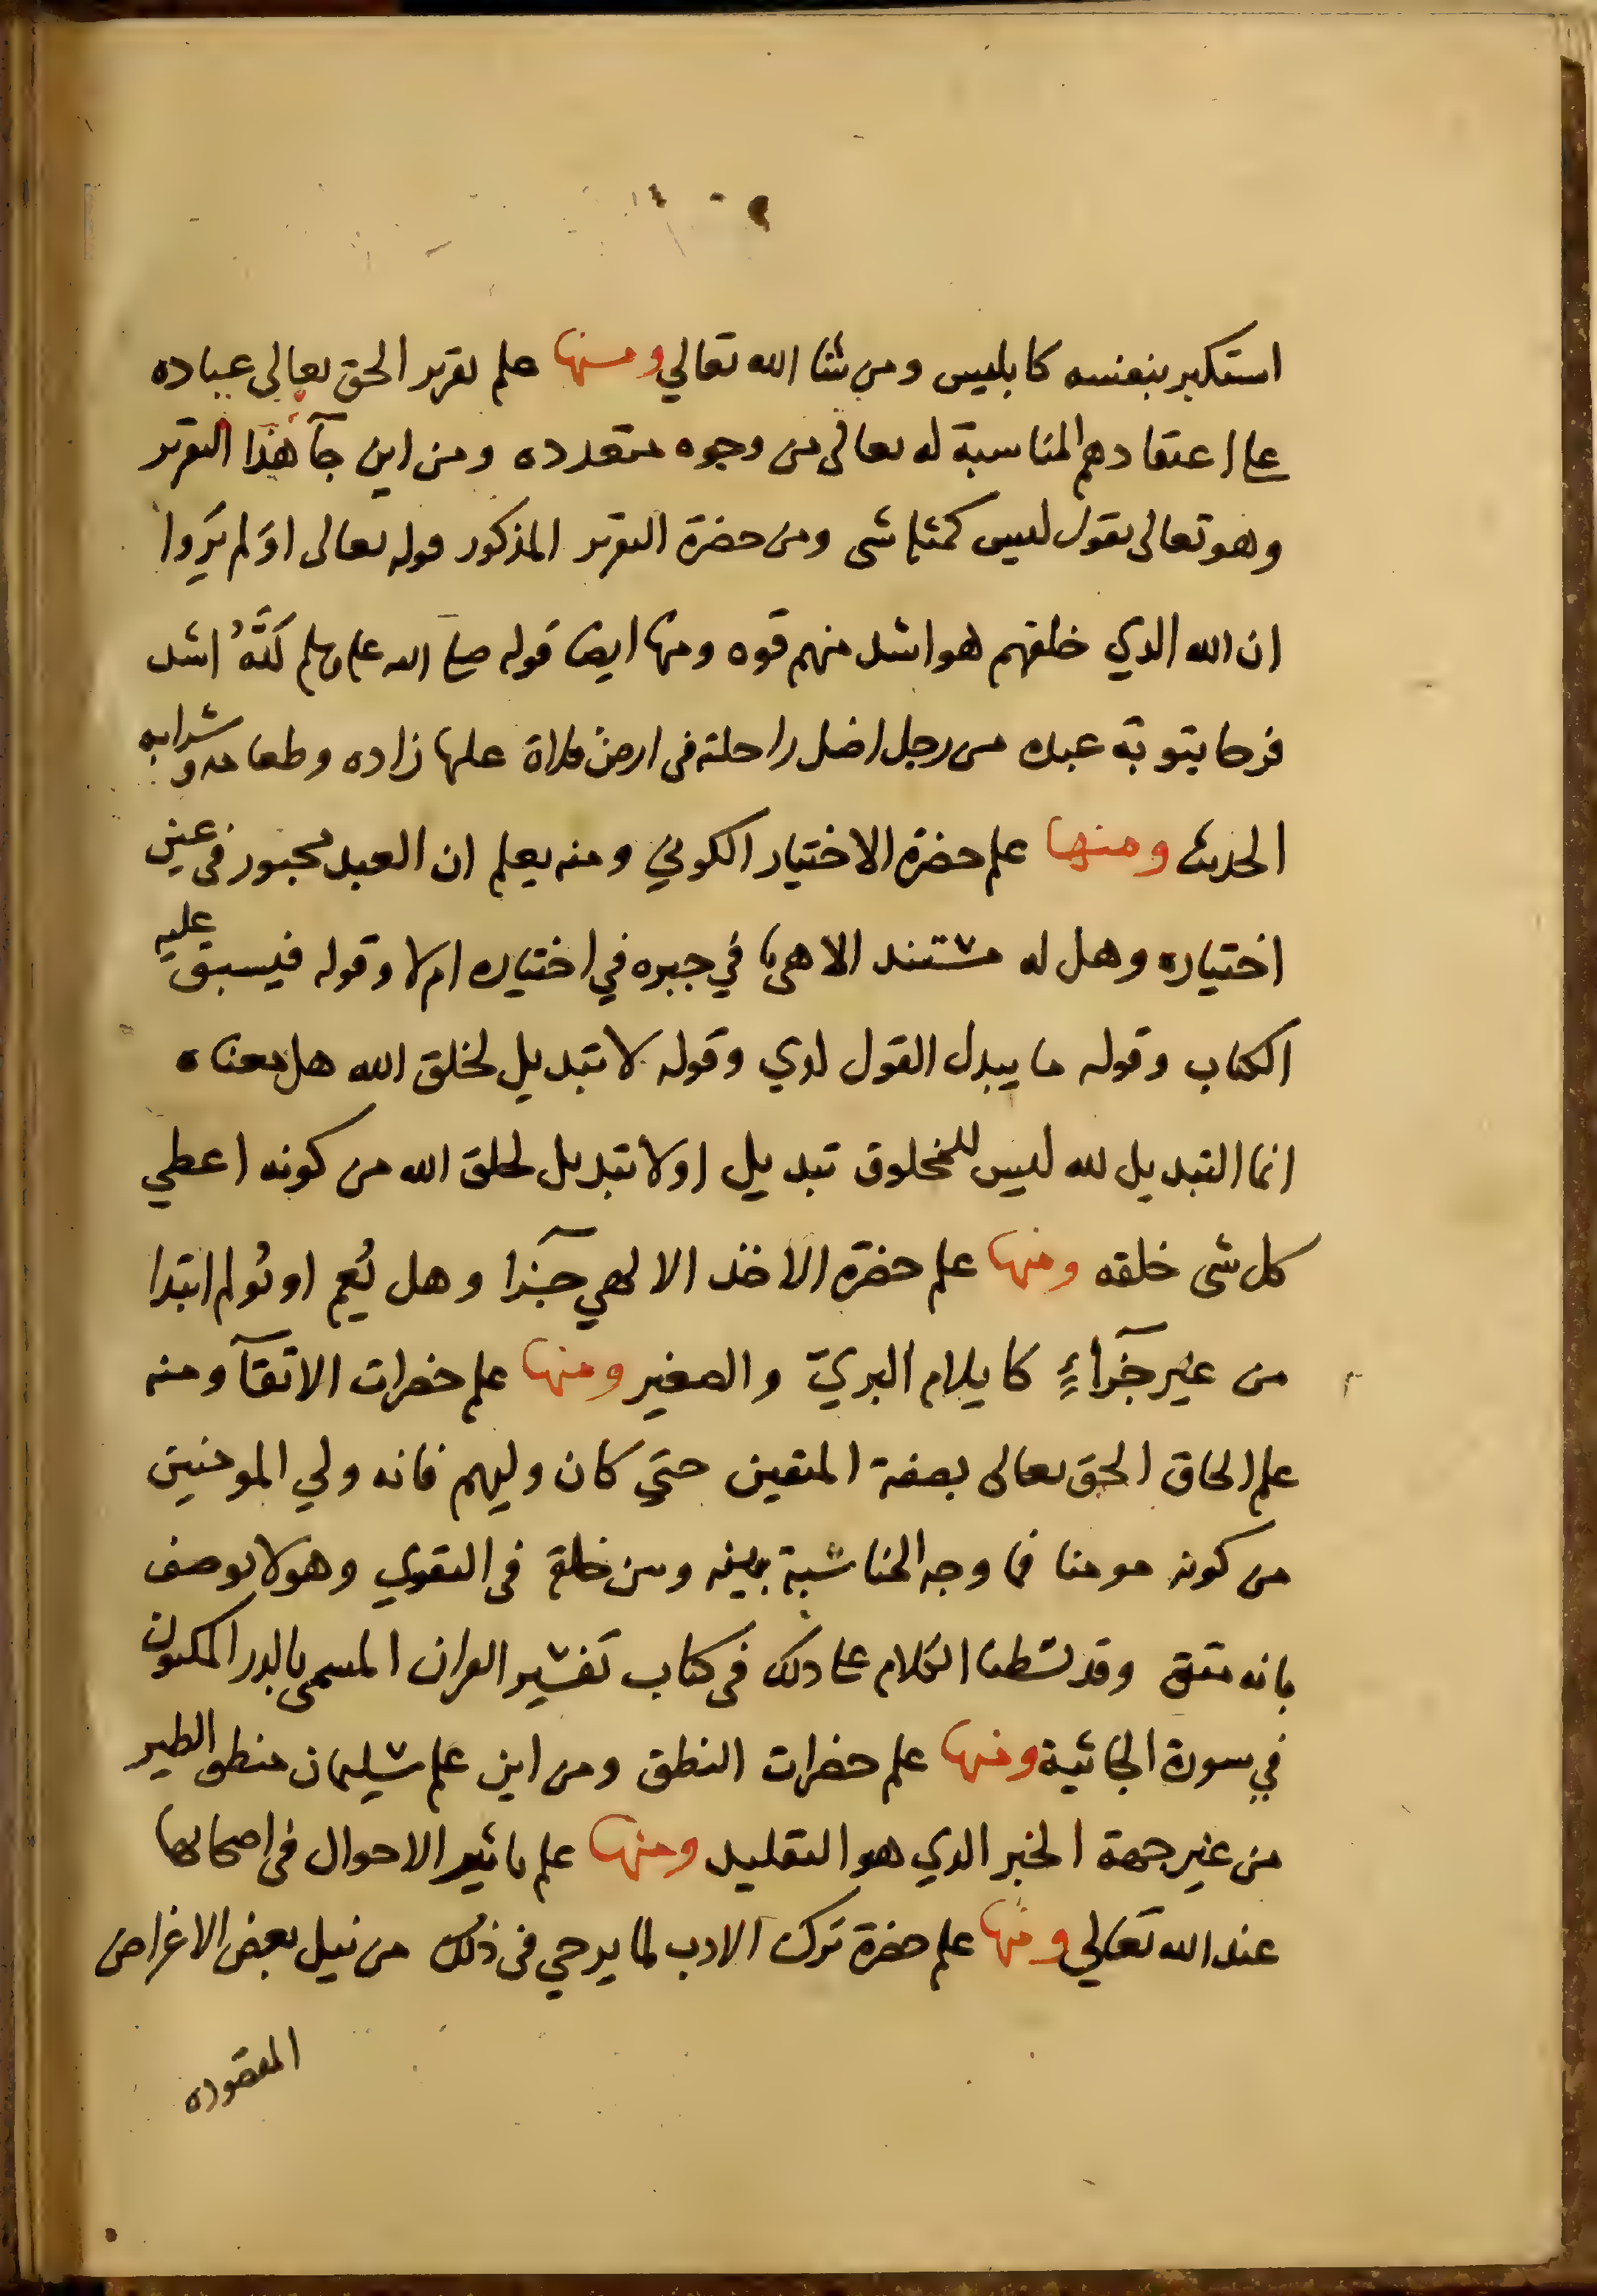 استكبر بنفسه كابليس ومن شا الله تعالي ومنها علم تقرير الحق تعالى عباده
على اعتقادهم المناسبة له تعالى من وجوه متعدده ومن اين جآ هذا التقرير
وهو تعالى يقول ليس كمثله شى ومن حضرة التقرير المذكور قوله تعالى اوَلم يَروا
ان الله الذي خلقهم هو اشد منهم قوه ومنها ايضا قوله صلى الله عليه وسلم لَلّهُ اشد
فرحا بتوبة عبده من رجل اضل راحلته في ارض فلاة عليها زاده وطعامه وشرابه
الحديث ومنها علم حضرة الاختيار الكوني ومنه يعلم ان العبد مجبور في عين
اختياره وهل له مستند الاهى في جبره في اختياره ام لا وقوله فيسبق عليه
الكتاب وقوله ما يبدل القول لدي وقوله لا تبديل لخلق الله هل معناه
انما التبديل لله ليس للمخلوق تبديل او لا تبديل لخلق الله من كونه اعطي
كل شى خلقه ومنها علم حضرة الاخذ الالهي جزآ وهل يُعم او يُولم ابتدا
من غير جَزآءٍ كايلام البريّ والصغير ومنها علم حضرات الاتقآ ومنه
علم الحاق الحق تعالى بصفة المتقين حتي كان وليهم فانه ولي المومنين
من كونه مومنا فما وجه المناسبة بينه وبين خلقه في التقوي وهو لا يوصف
بانه متق وقد بسطنا الكلام على ذلك في كتاب تفسير القران المسمى بالدر المكنون
في سورة الجاثية ومنها علم حضرات النطق ومن اين علم سليمان منطق الطير
من غير جهة الخبر الذي هو التقليد ومنها علم تاثير الاحوال في اصحابها
عند الله تعالي ومنها علم حضرة ترك الادب لما يرجي في ذلك من نيل بعض الاغراض
المقصوده